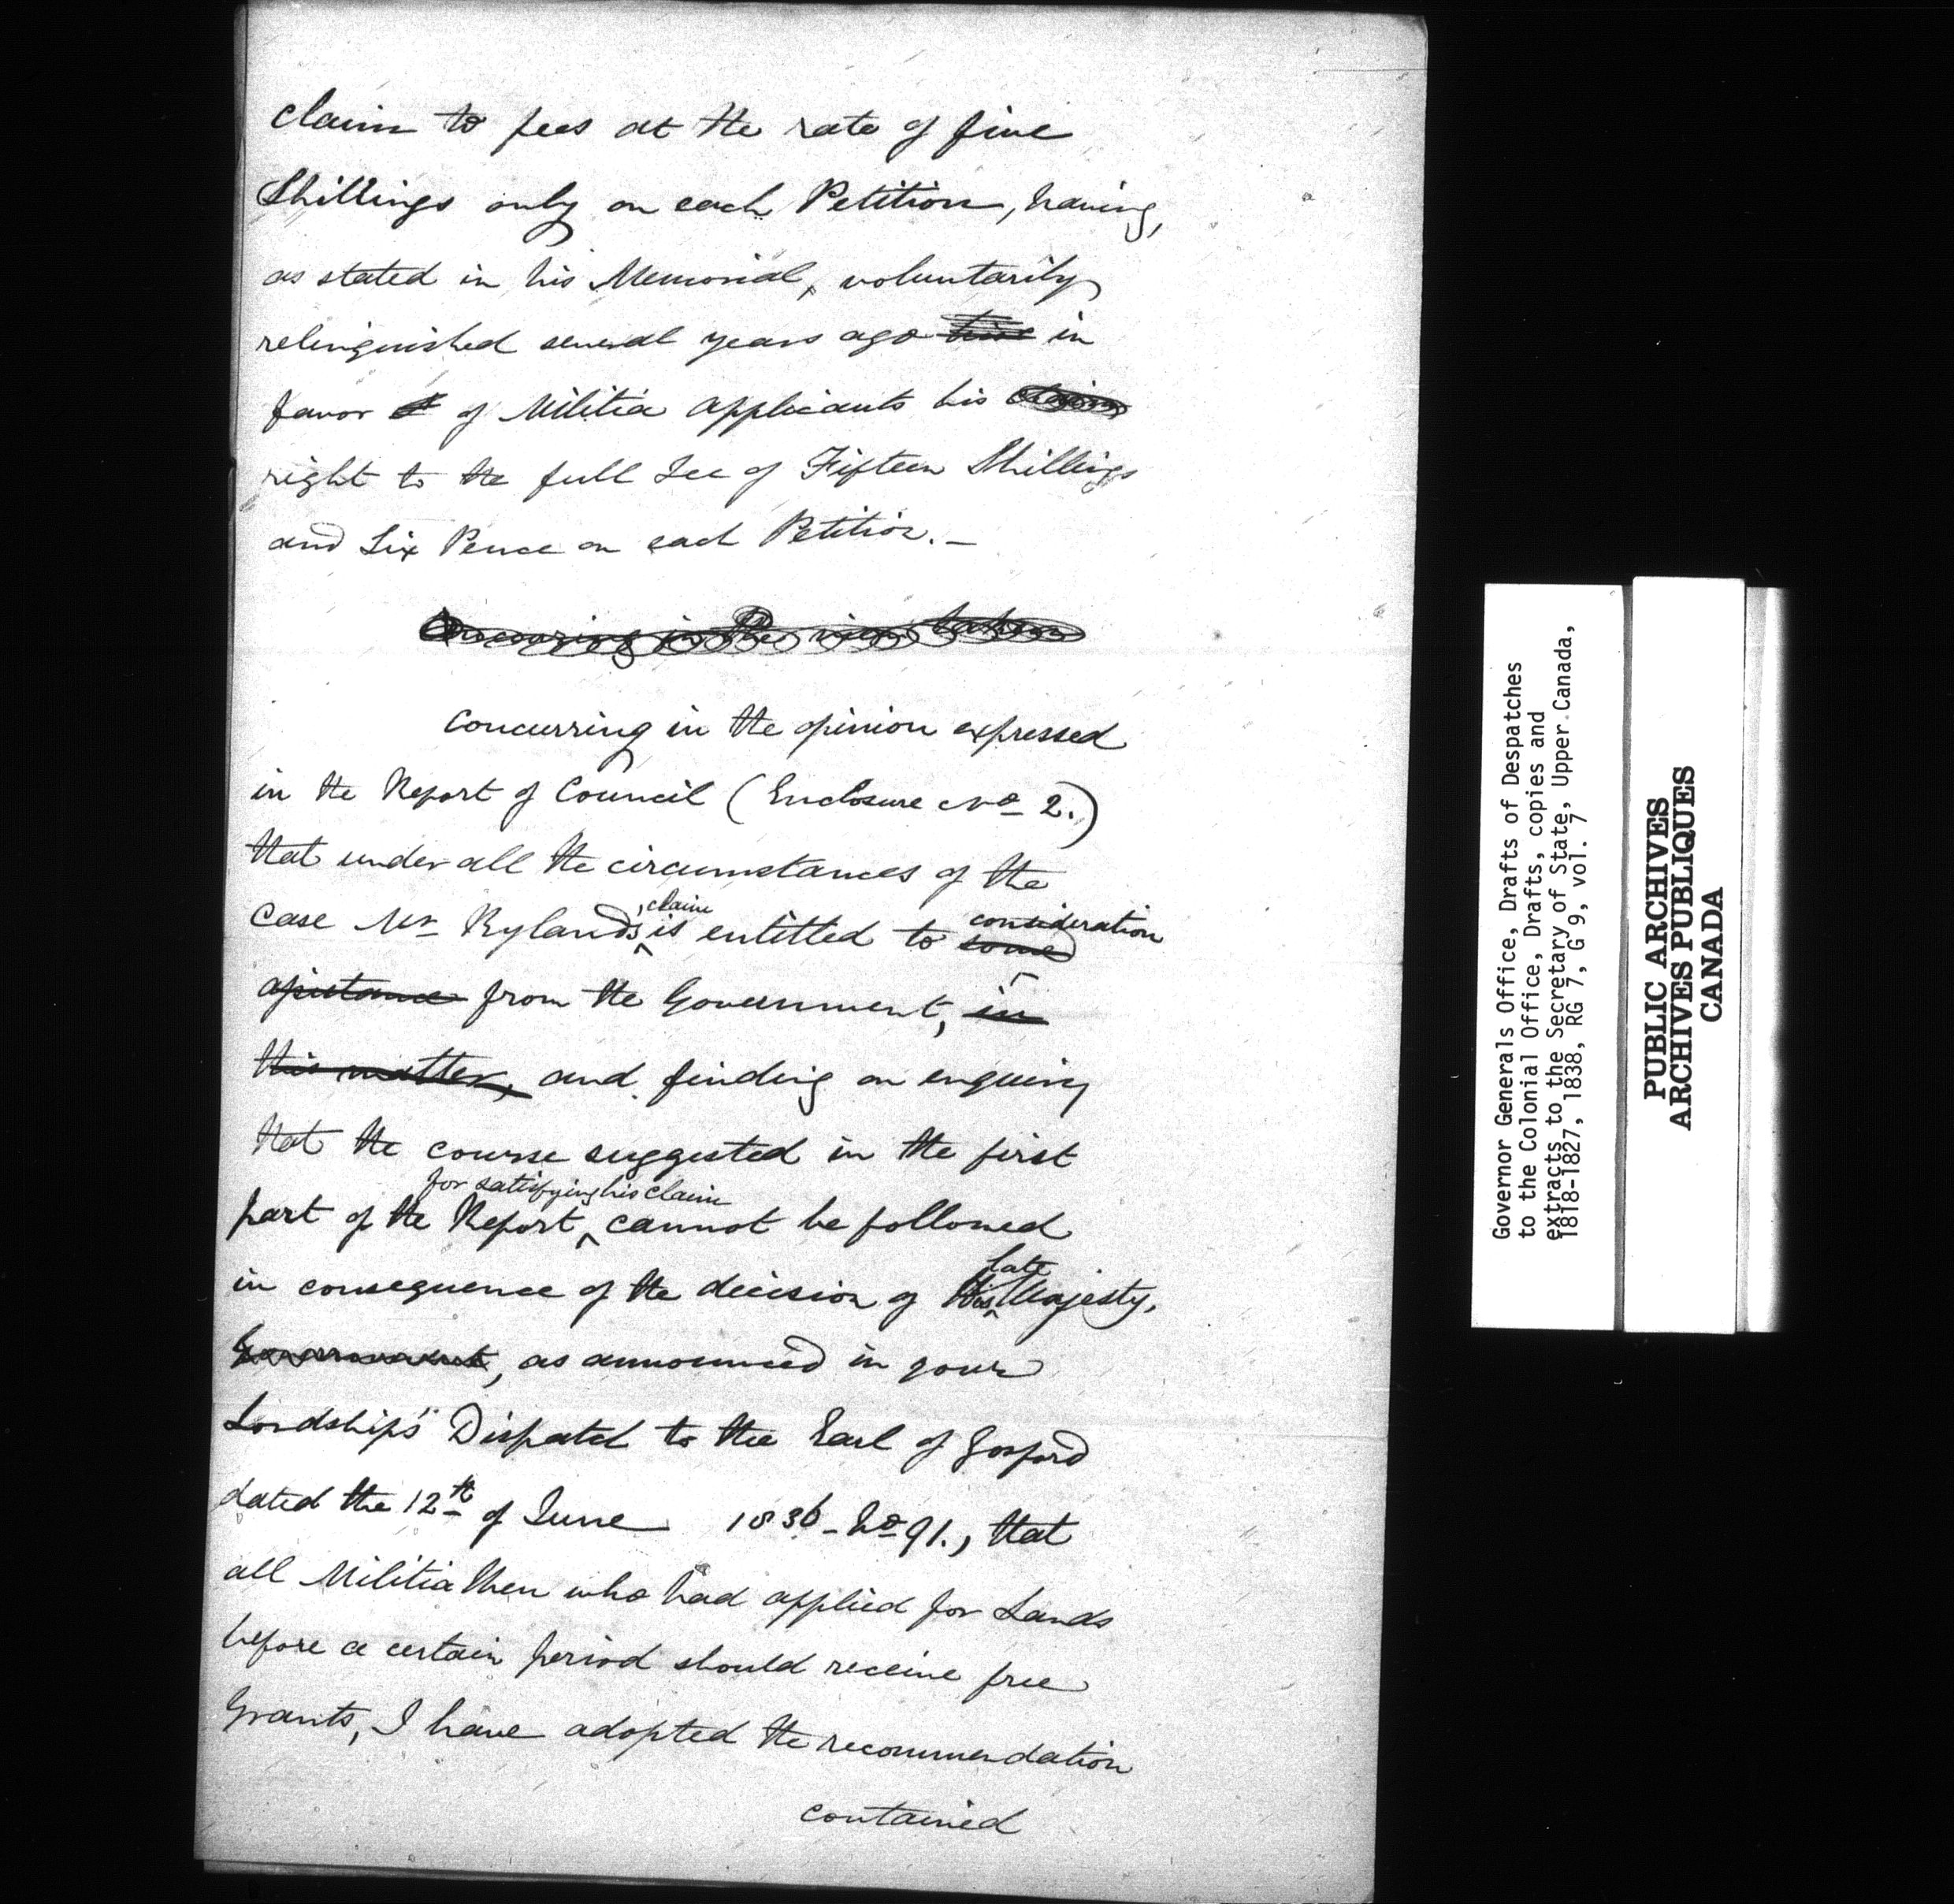 claim to fees at the rate of five
Shillings only on each Petition, having,
as stated in his Memorial, voluntarily
relinquished several years ago in
favor of Militia applicants his claim
right to the full Fee of Fifteen Shillings
and Six Pence on each Petition.—
Concurring in the view taken
Concurring in the opinion expressed
in the Report of Council (Enclosure No 2.)
that under all the circumstances of the
claim
case Mr Rylands is entitled to some
consideration
assistance from the Government, in
this matter, and finding on enquiry
that the course suggested in the first
for satisfying his claim
part of the Report cannot be followed
late
in consequence of the decision of His Majesty,
Government, as announced in your
Lordship's Dispatch to the Earl of Gosford
dated the 12th of June 1836 - No 91., that
all Militia Men who had applied for Lands
before a certain period should receive free
Grants, I have adopted the recommendation
contained
Governor Generals Office, Drafts of Despatches
to the Colonial Office, Drafts, copies and
extracts to the Secretary of State, Upper Canada,
1818-1827, 1838, RG 7, G 9, vol. 7
PUBLIC ARCHIVES
ARCHIVES PUBLIQUES
CANADA